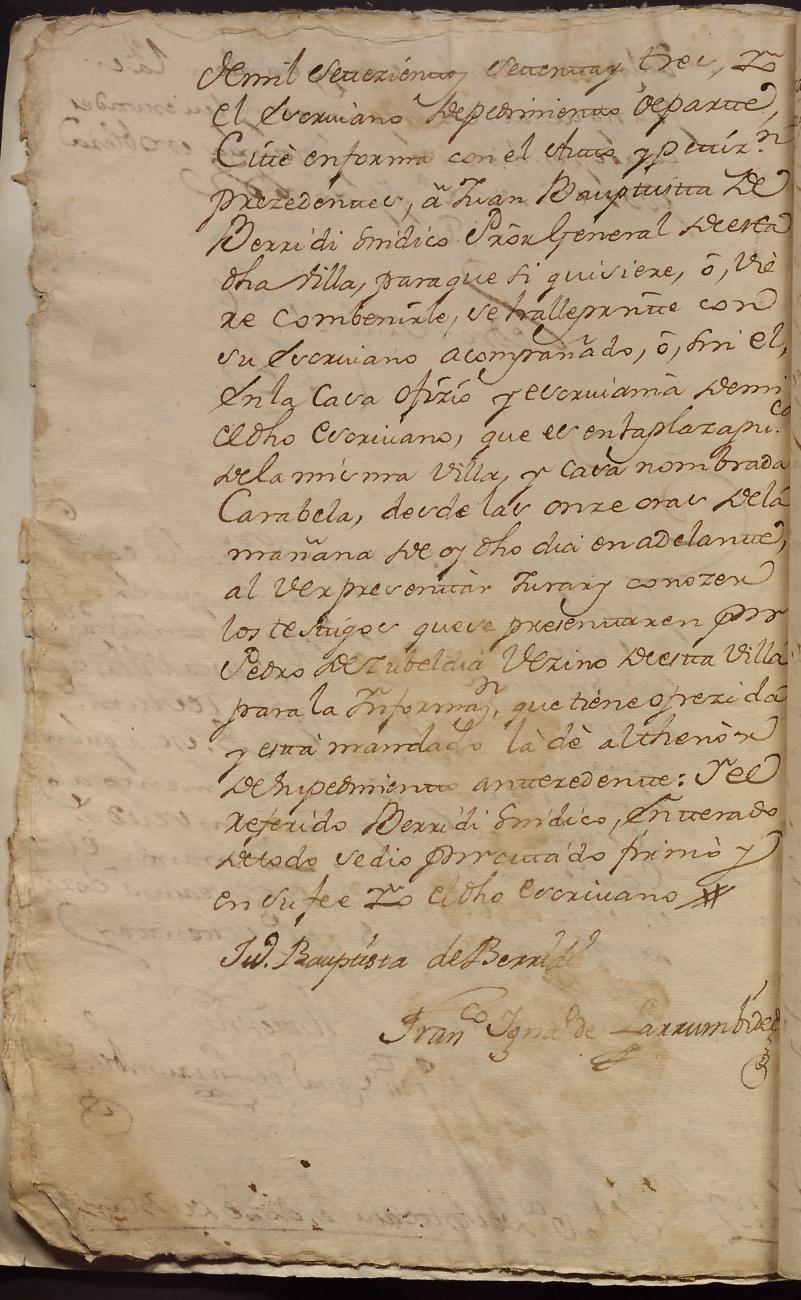 de mil setteziento, settentta y tres, Yo
el Escrivano de pedimiento de partte,
Cittè en forma con el Autto y pettiz.n
prezedentes, â Juan Bauptistta de
Berridi Sindico Prôr General de esta
dha Villa, para que si quisiere, ô, vie
re combenirle, se halle presntte con
su Escrivano acompañado, ô, sin el,
En la Casa ofizio y escrivania de mi
el dho Escrivano, que es enta plaza pu.ca
de la misma Villa, y casa nombrada
Carabela, desde las onze oras de la
mañana de oy dho dia en adelantte,
al ver presenttar Jurar y conozer
los testigos que se presenttaren por
Pedro de Zubeldia Vezino de estta Villa
para la Informaz.n, que tiene ofrezida
y estta mandado la dè al thenòr
de su pedimientto anttezedentte: Y el
referido Berridi Sindico, Entterado
de todo se dio por cittado firmò y
en su fee Yo el dho escrivano
Ju.n Bauptista de Berridi
Fran.co Ign.o de Larrumbide